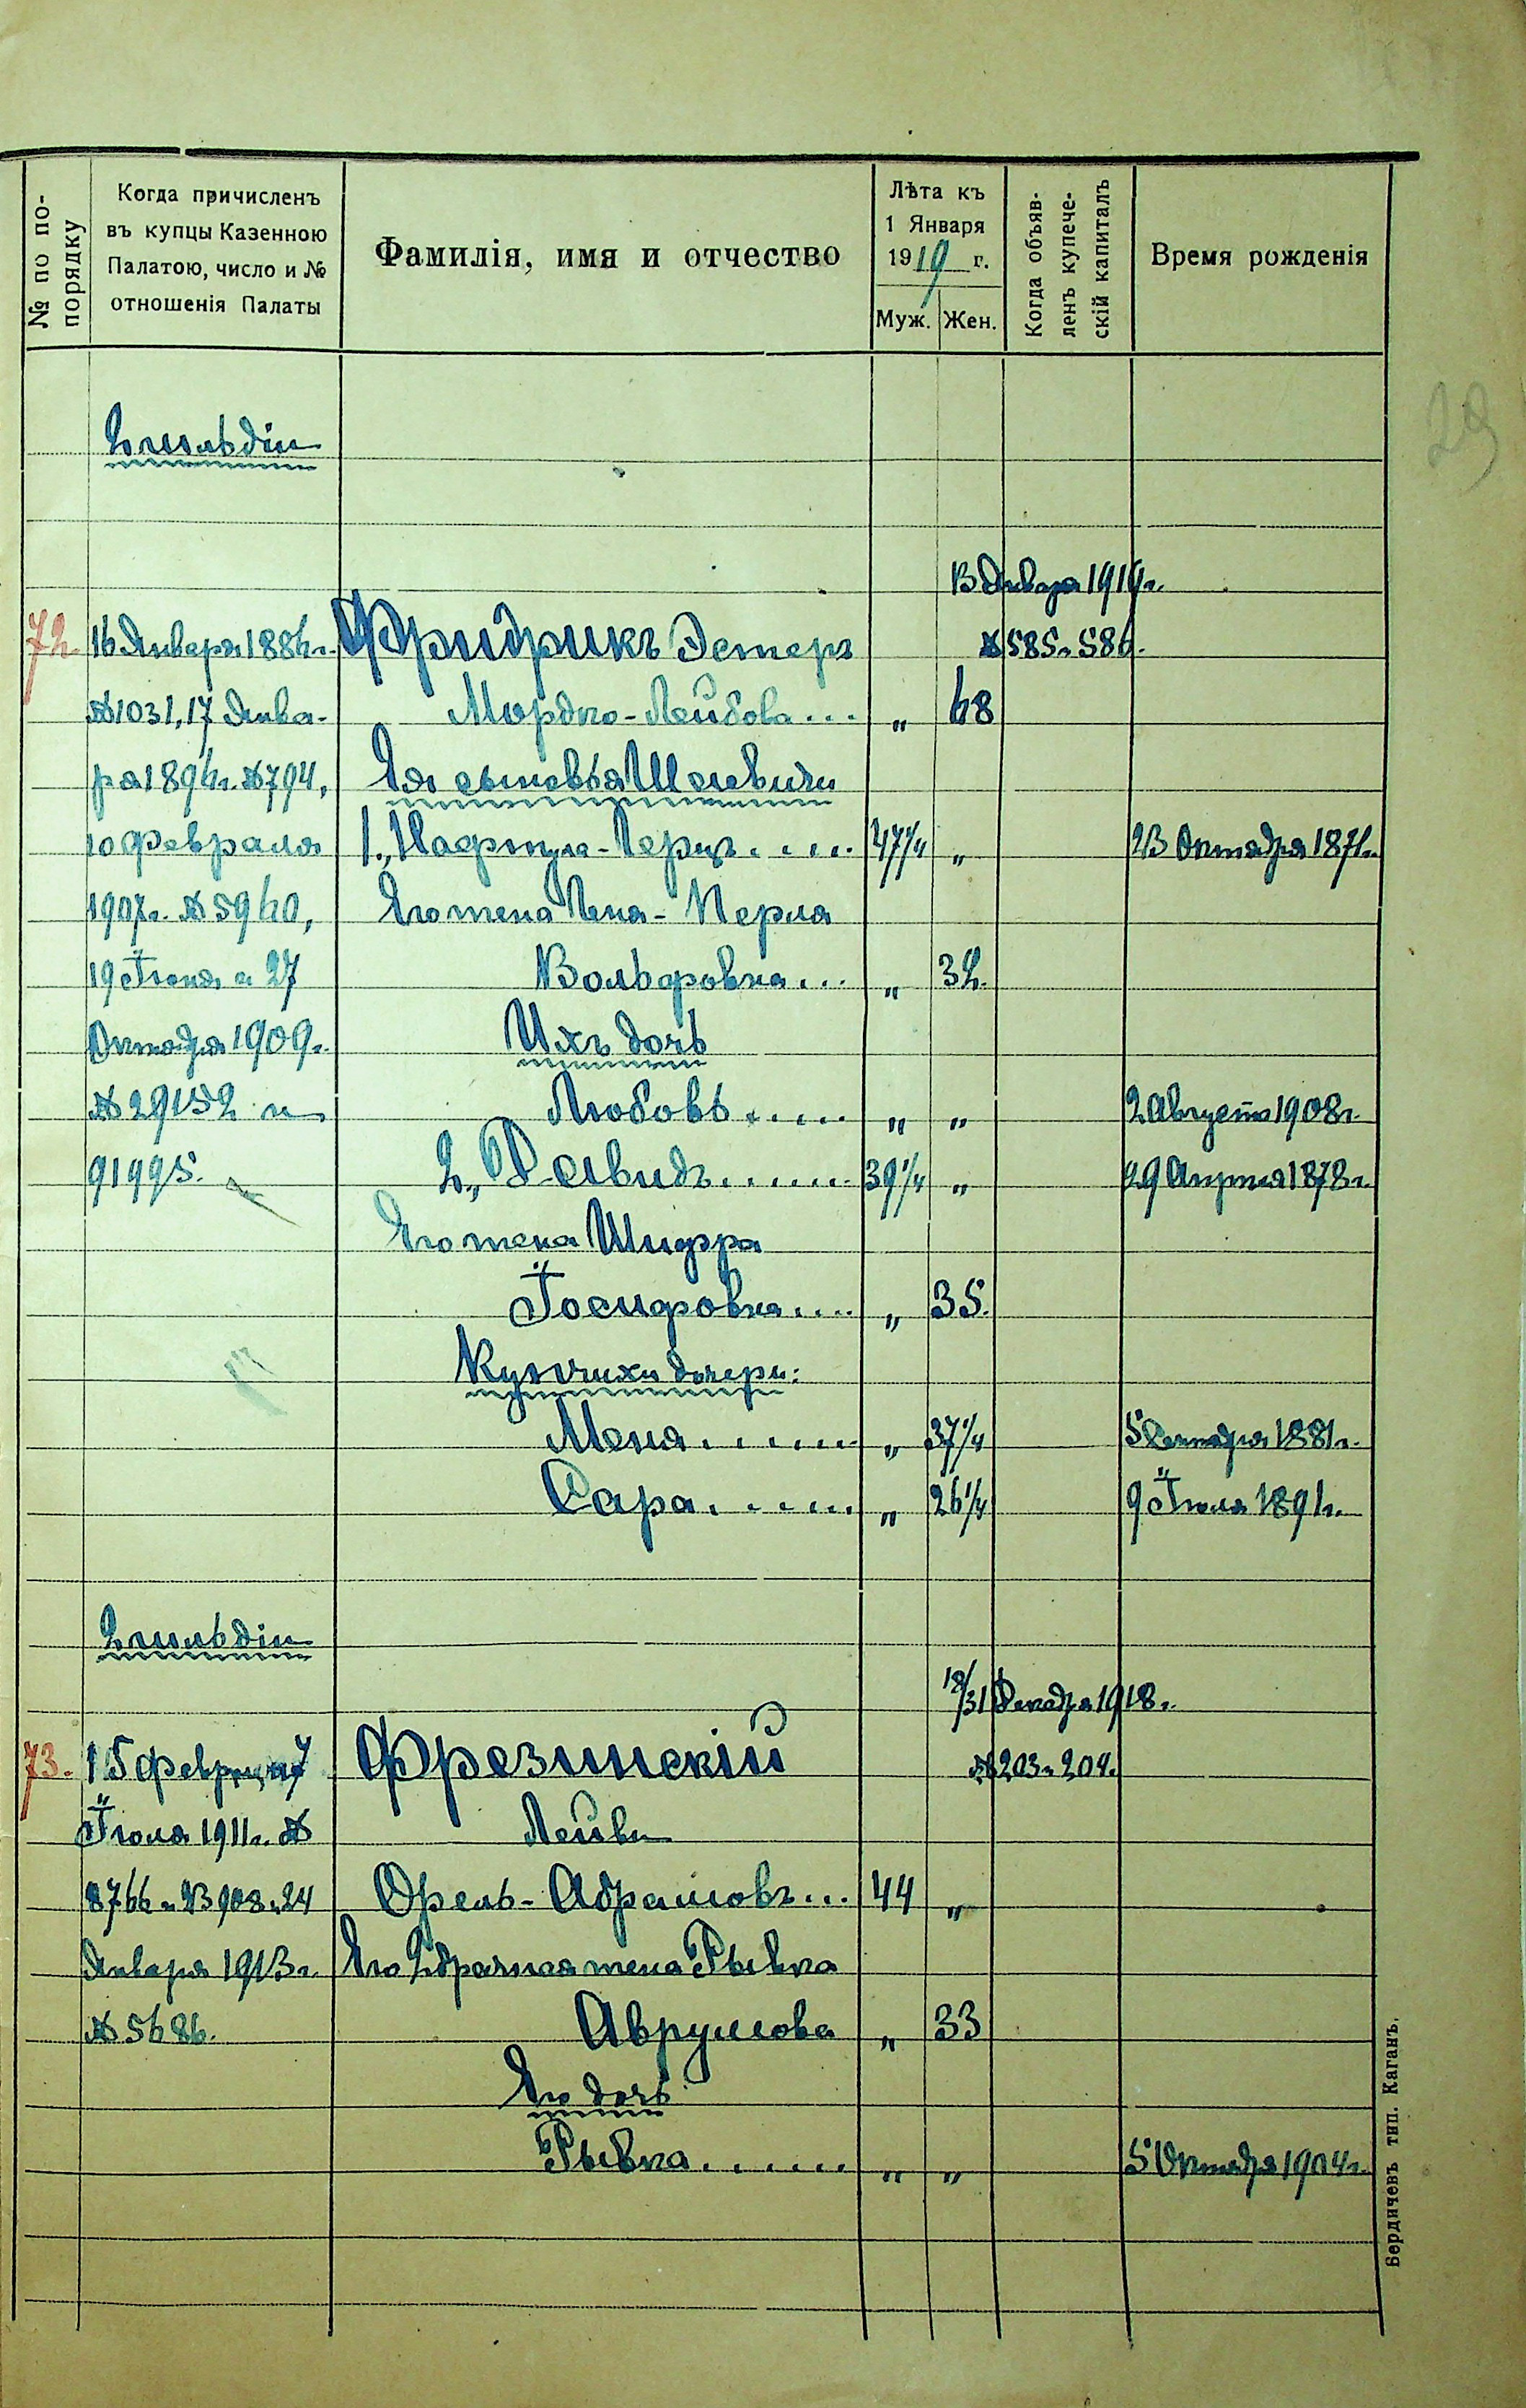 № по по-
порядку
Когда причисленъ
въ купцы Казенною
Палатою, число и №
отношенія Палаты
Фамилія, имя и отчество
Лѣта къ
1 Января
1919 г.
Муж. Жен.
Когда объяв-
ленъ купече-
скій капиталъ
Время рожденія
29
2 гильдіи
Января 1919 г.
72. 16 Января 1886 г. Фридрикъ Эстеръ № 585 и 586.
№ 1031, 17 Янва- Мордко-Лейбова... „ 68
ря 1896 г. № 794, Ея сыновья
10 Февраля 1., Нафтула-Герцъ..... 47 1/4 „ 23 Октября 1871 г.
1907 г. № 5960, Его жена Перла
19 Іюня и 27 Вольфовна... „ 32.
Октября 1909 г. Ихъ дочь
№ 29152 и Любовь..... „ „ 2 Августа 1908 г.
91995. 2., 39 1/4 „ 29 Апрѣля 1878 г.
Его жена Шифра
Іосифовна.... „ 35.
Купчихи дочери:
Меня...... „ 37 1/4 1881 г.
Сара..... „ 26 1/4 9 Іюля 1891 г.
2 гильдіи
18/31 Декабря 1918 г.
73. 15 Февр. и 7 Фрезинскій № 203 и 204.
Іюля 1911 г. № Лейви
8766 и 23908 и 24 Орель-Абрамовъ... 44 „
Января 1913 г. Его 2 брачная жена Рывка
№ 5686. Аврумова „ 33
Его дочь
Рывка...... „ „ 5 Октября 1904 г.
Бердичевъ тип. Каганъ.